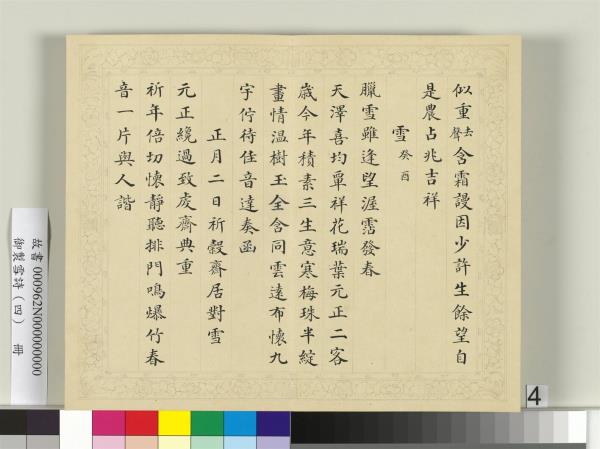 似重去聲含霜謾因少許生餘望自
是農占兆吉祥
雪癸酉
臘雪雖逢望渥霑發春
天澤喜均覃祥花瑞葉元正二客
歲今年積素三生意寒梅珠半綻
畫情温樹玉全含同雲遠布懷九
宇佇待佳音達奏函
正月二日祈穀齋居對雪
元正纔過致虔齋典重
祈年倍切懷靜聽排門鳴爆竹春
音一片與人諧
故書 000962N0000000000
御製雪詩（四） 冊
4